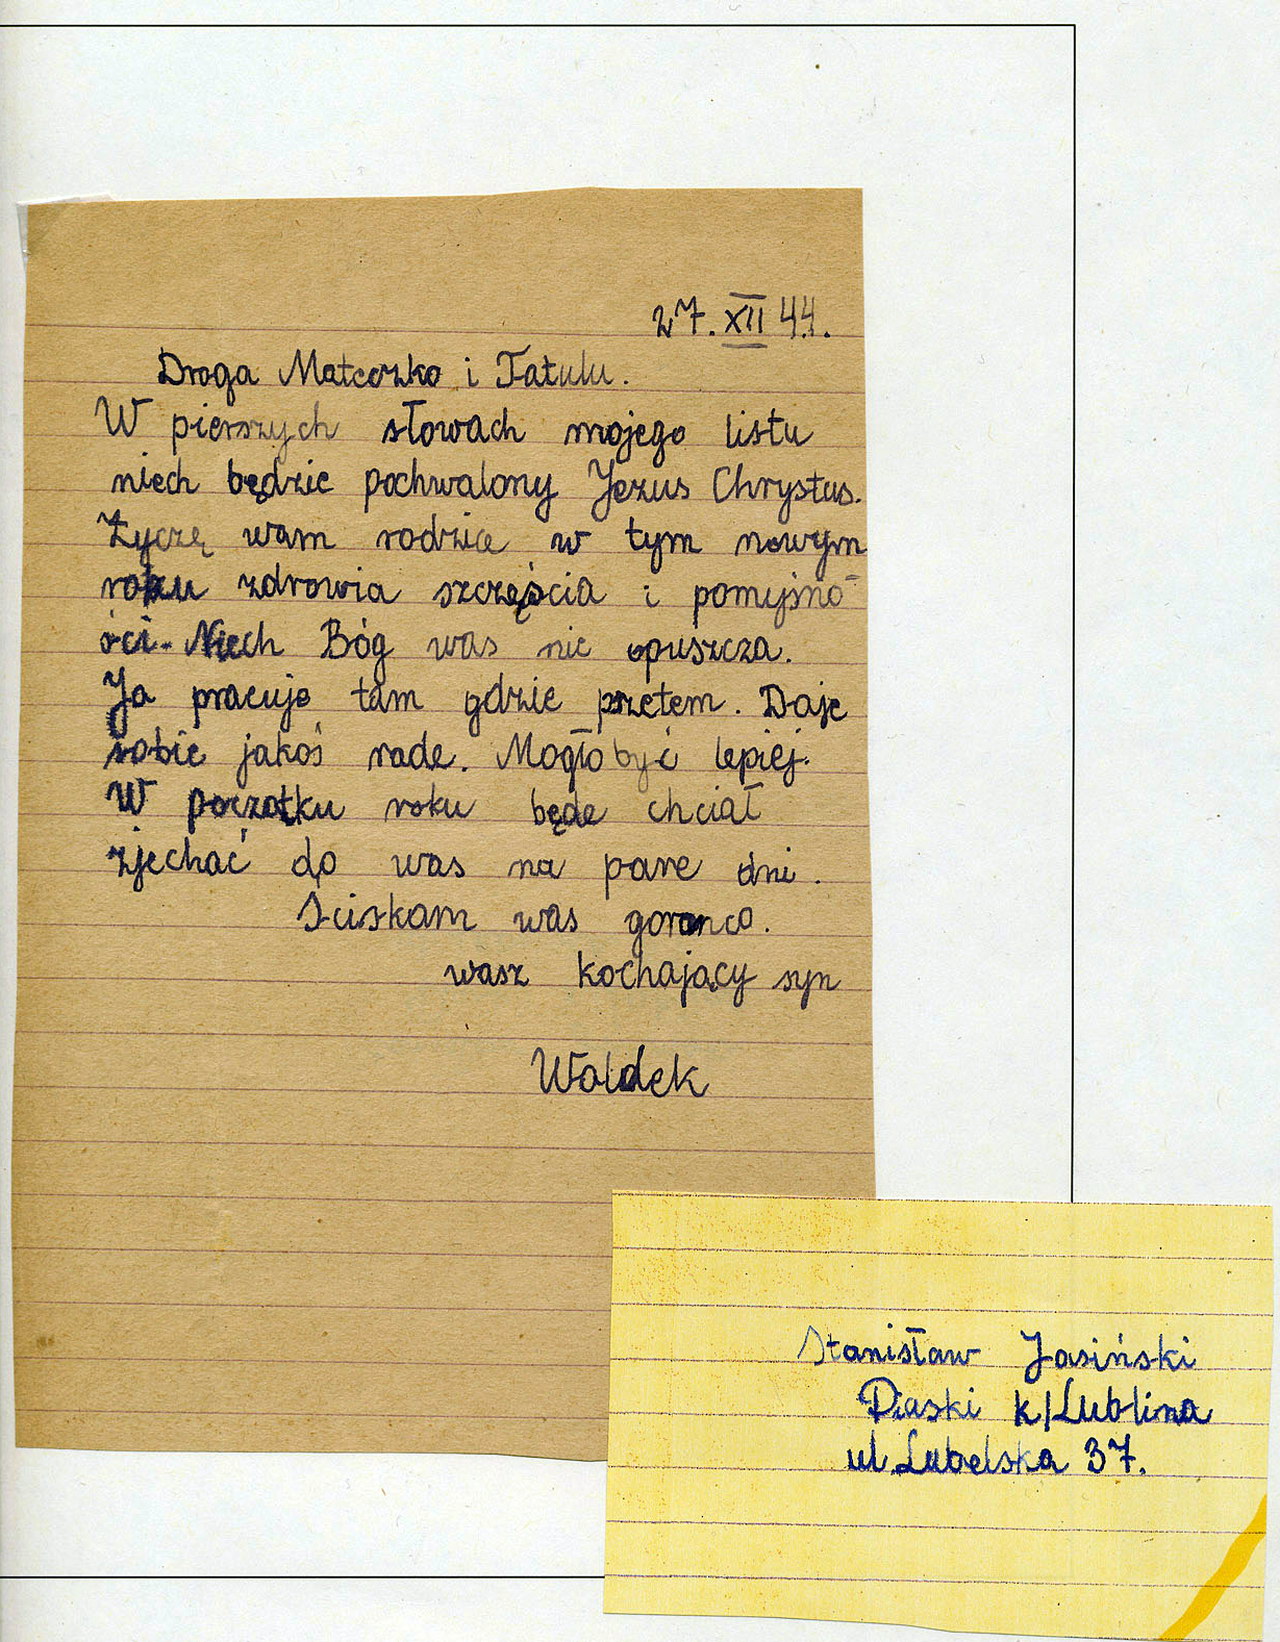 27. XII 44.
Droga Mateczko i Tatulu.
W pierszych słowach mojego listu
niech będzie pochwalony Jezus Chrystus.
Życzę wam rodzice w tym nowym
roku zdrowia szczęścia i pomyśno-
ści. Niech Bóg was nie opuszcza.
Ja pracuje tam gdzie przetem. Daje
sobie jakoś rade. Mogło być lepiej.
W początku roku będe chciał
zjechać do was na pare dni.
Sciskam was goronco.
wasz kochający syn
Waldek
Stanisław Jasiński
Piaski k/Lublina
ul. Lubelska 37.